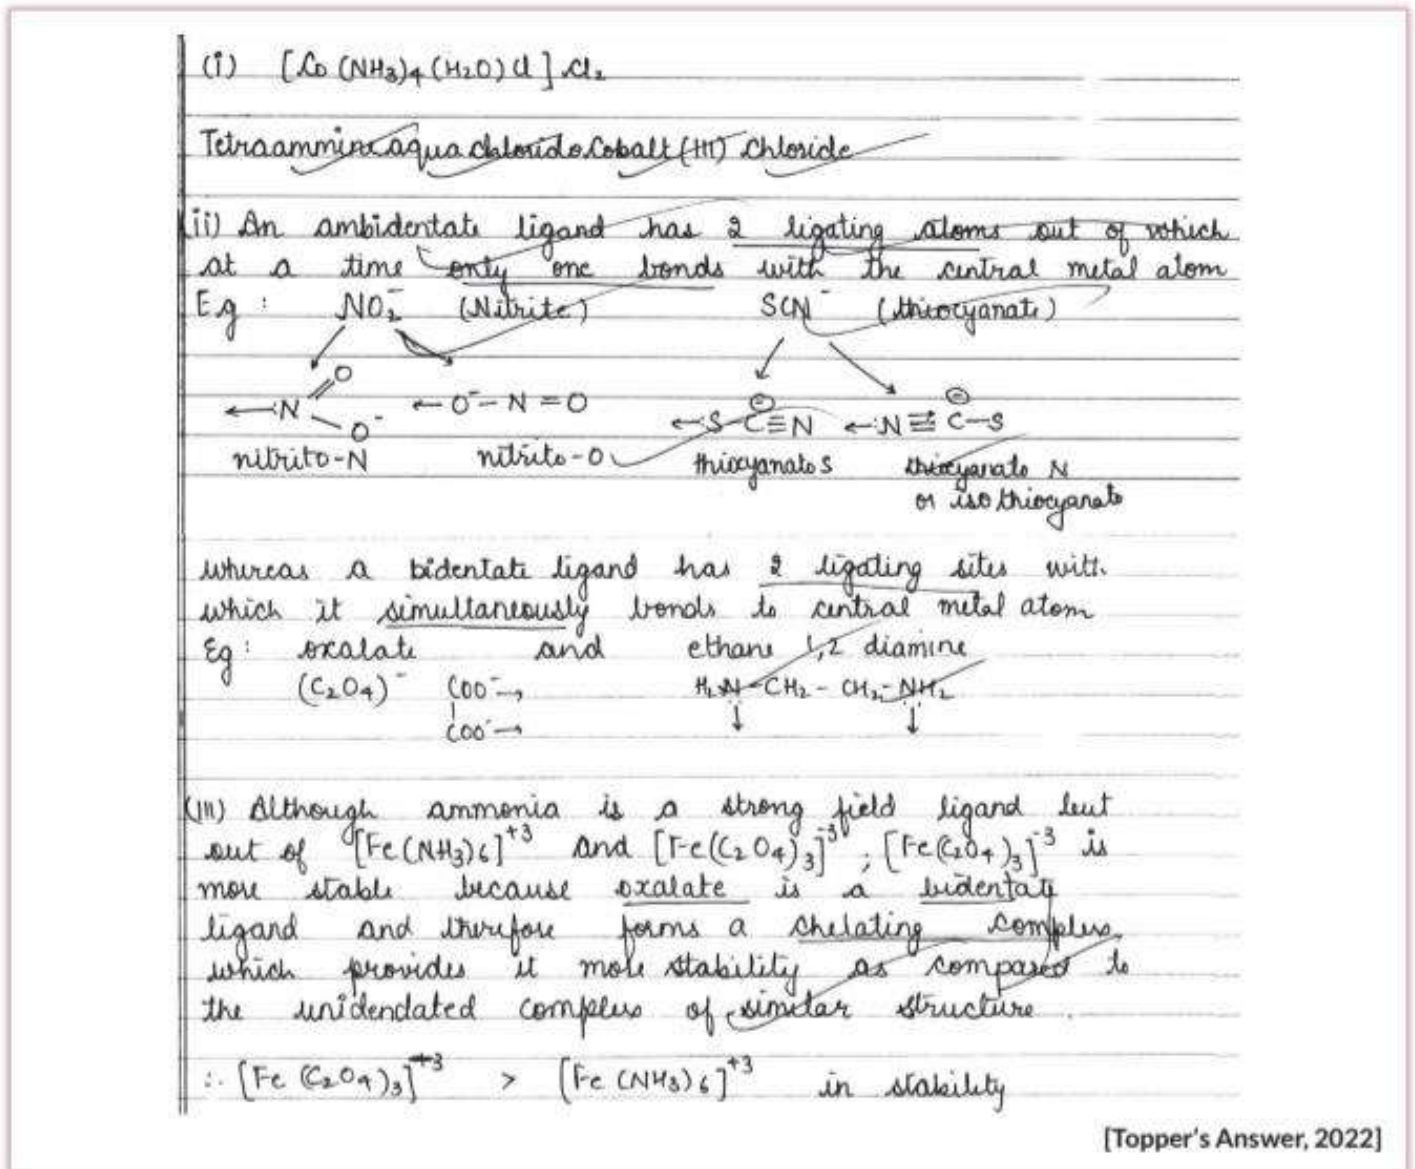 (i) [Co (NH3)4 (H2O) Cl ] Cl2
Tetraammine aqua chlorido Cobalt (III) Chloride
(ii) An ambidentate ligand has 2 ligating atoms out of which
at a time only one bonds with the central metal atom
Eg : NO2⁻ (Nitrite) SCN⁻ (thiocyanate)
←:N =O –O⁻ ← O⁻– N = O ←S – C≡N ←:N≡C–S
nitrito-N nitrito-O thiocyanato S thiocyanato N
or iso thiocyanato
whereas a bidentate ligand has 2 ligating sites with
which it simultaneously bonds to central metal atom
Eg : oxalate and ethane 1,2 diamine
(C2O4)⁻ COO⁻→ H2N – CH2 – CH2 – NH2
COO⁻→ ↓ ↓
(III) Although ammonia is a strong field ligand but
out of [Fe (NH3)6]⁺³ and [Fe(C2O4)3]⁻³ ; [Fe(C2O4)3]⁻³ is
more stable because oxalate is a bidentate
ligand and therefore forms a chelating complex
which provides it more stability as compared to
the unidendated complex of similar structure .
∴ [Fe (C2O4)3]⁺³ > [Fe (NH3)6]⁺³ in stability
[Topper's Answer, 2022]